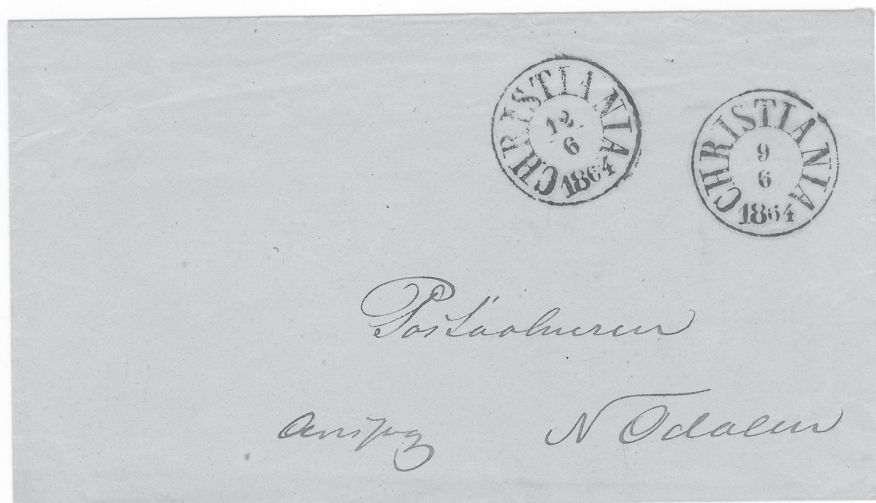 CHRISTIANIA
12
6
1864
CHRISTIANIA
9
6
1864
Postaabneren
N Odalen